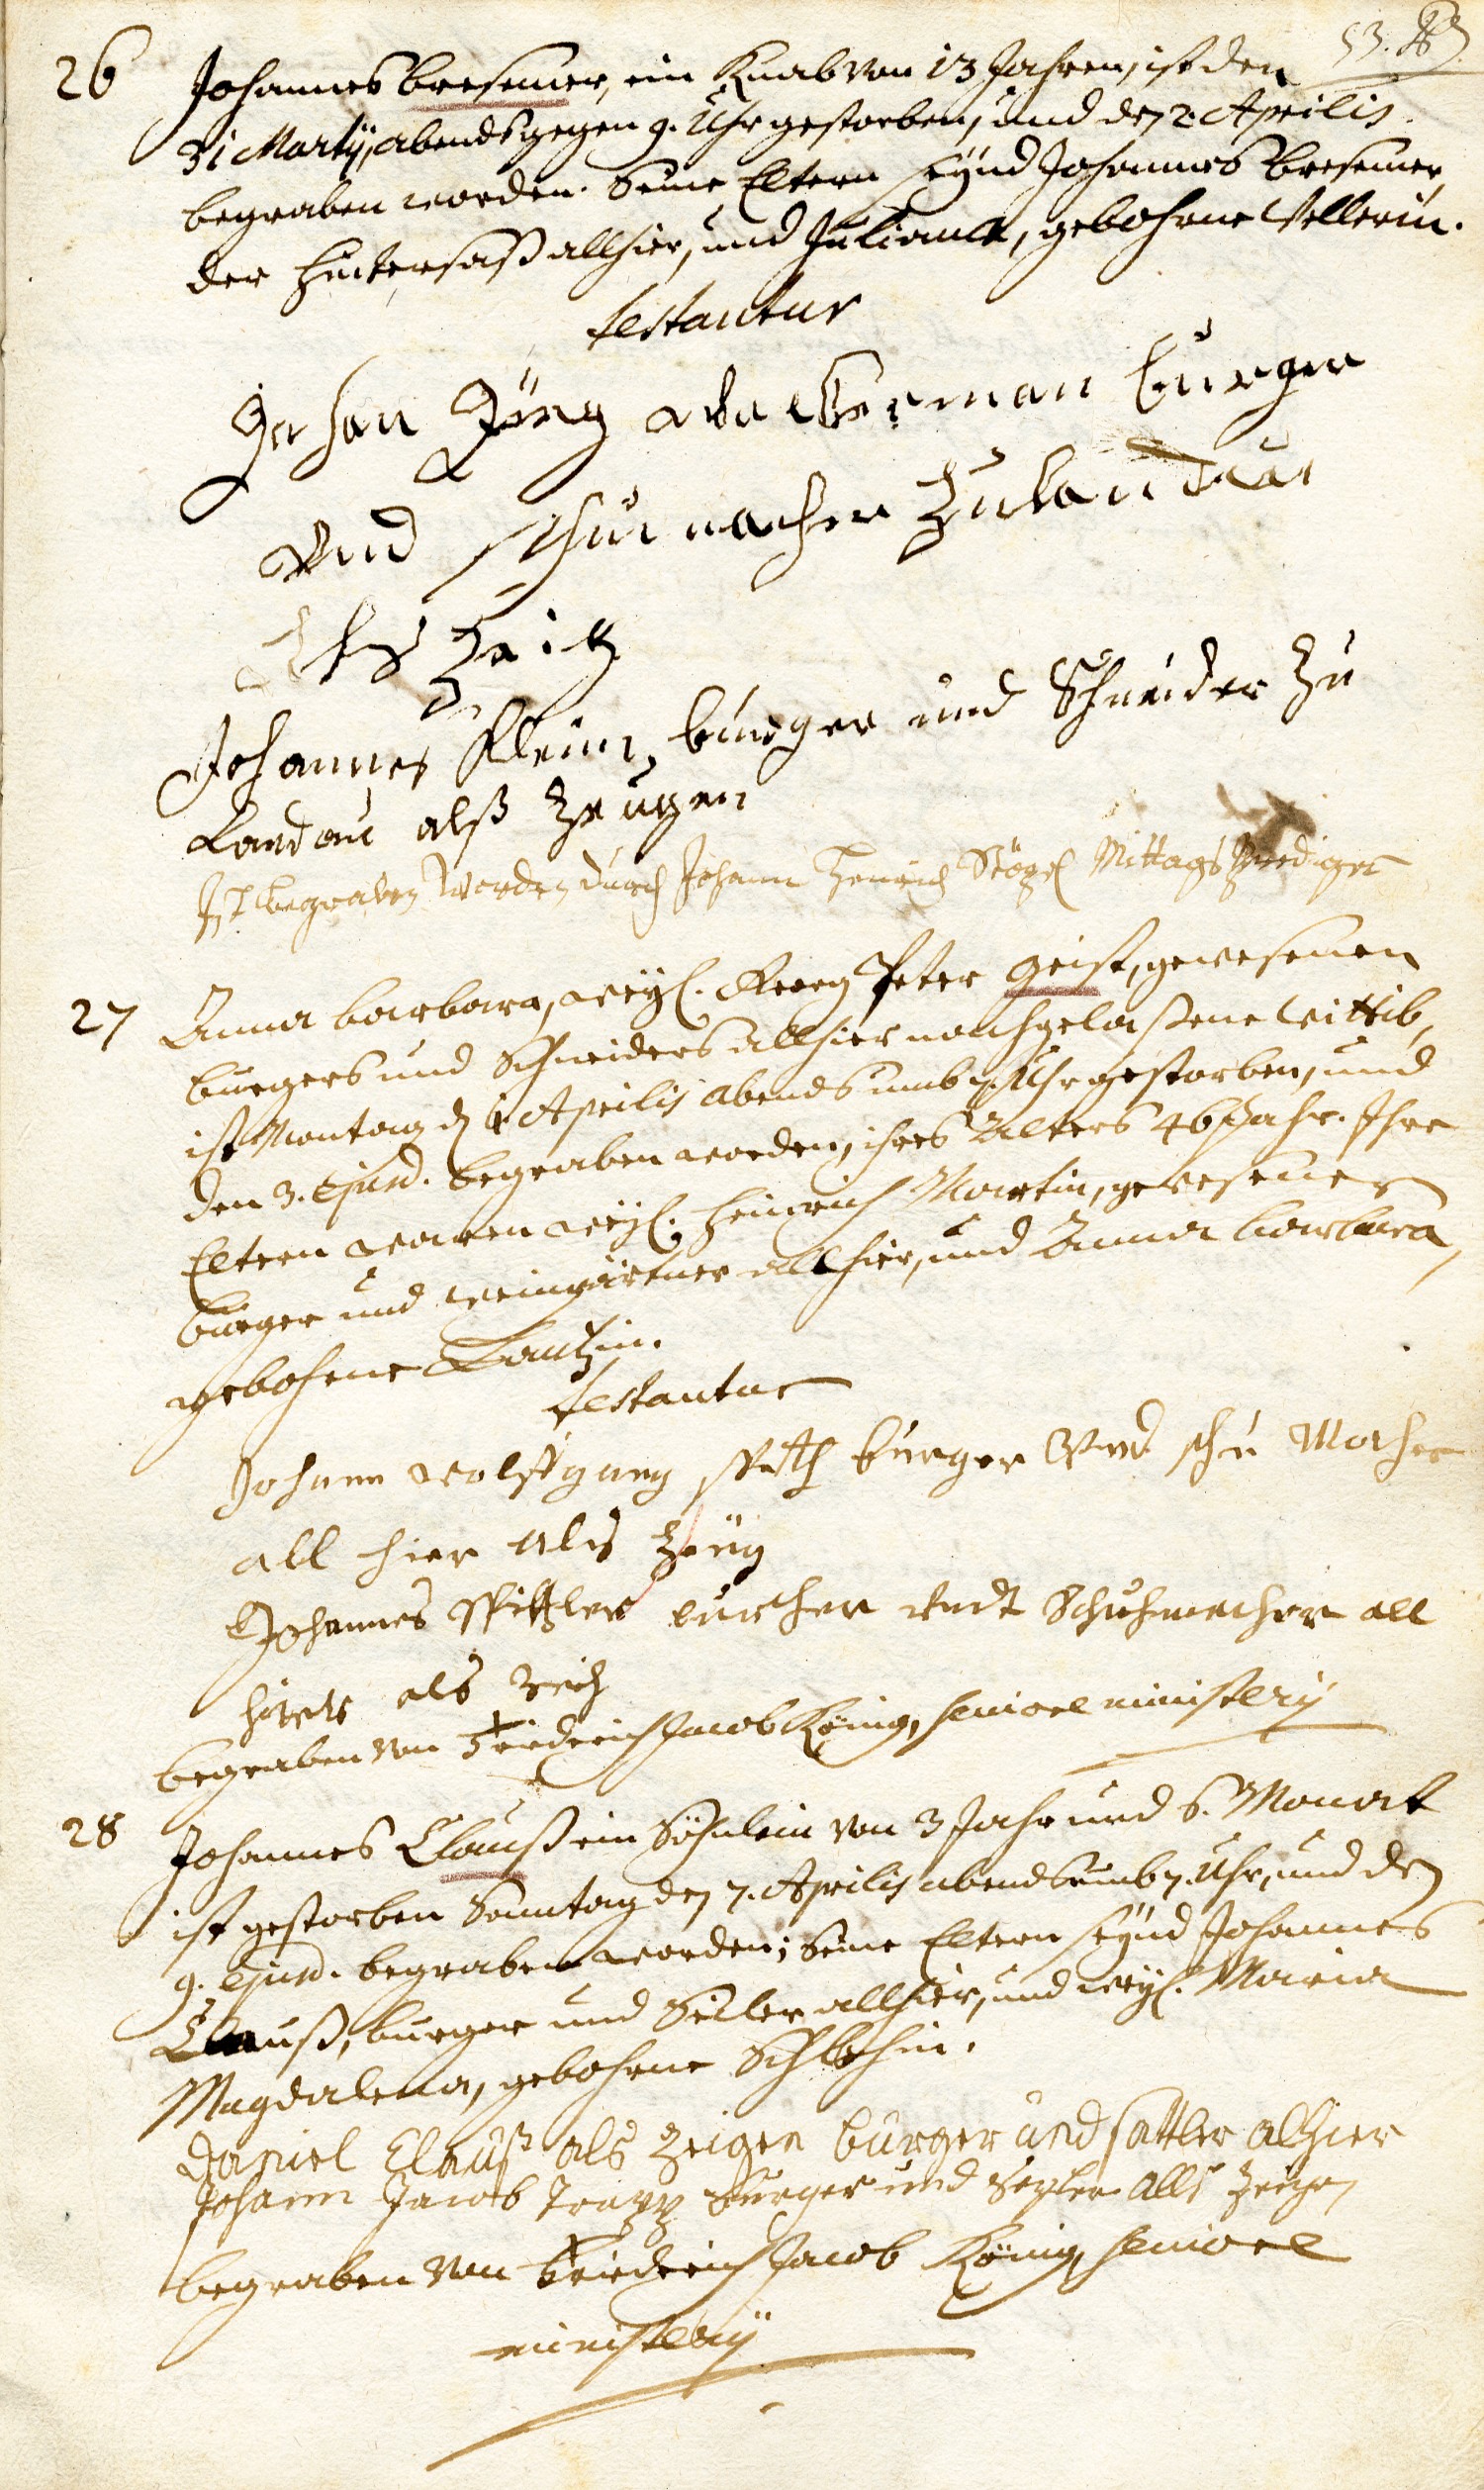 53.
26 Johannes Bresemer, ein Knab von 13 Jahren, ist den
31 Martij, abends gegen 9. Uhr gestorben, und den 2. Aprilis.
begraben worden. Seine Eltern seÿnd Johannes Bresemer,
der Hintersaß allhier, und Juliana, gebohrne Vellerin.
testantur
Johan Jörg burger
und schumacher zu landau
als zeig
Johannes Klein, burger und Schneider zu
Landau alß Zeugen
Ist begraben worden durch Johann Henrich Mittags Prediger
27 Anna Barbara, weÿl. Georg Peter Geist, gewesenen
burgers und Schneiders allhier nachgelaßene Wittib,
ist Montag d 1 Aprilis abends umb 7. Uhr gestorben, und
den 3. ejusd. begraben worden, ihres Alters 46 Jahr. Ihre
Eltern waren weÿl. Heinrich Martin, gewesener
burger und weingärtner allhier, und Anna barbara,
gebohrne Lautzin.
testantur
Johann wolfgang burger Und schu Macher
all hier als Zeüg
Johannes Spittler burcher undt Schuhmacher all
hier als Zeich
begraben von Friedrich Jacob König, Seniore ministerij
28 Johannes Clauß ein Söhnlein von 3 Jahr und 6. Monat
ist gestorben Sonntag den 7. Aprilis abends umb 7. Uhr, und den
9. ejusd. begraben worden; Seine Eltern seÿnd Johannes
Clauß, burger und Seiler allhier, und weÿl. Maria
Magdalena, gebohrne
Daniel Clauß als Zeigen burger und sattler alhier
Johann Jacob Trapp burger und alls Zeigen
begraben von Friedrich Jacob König, Seniore
ministerij